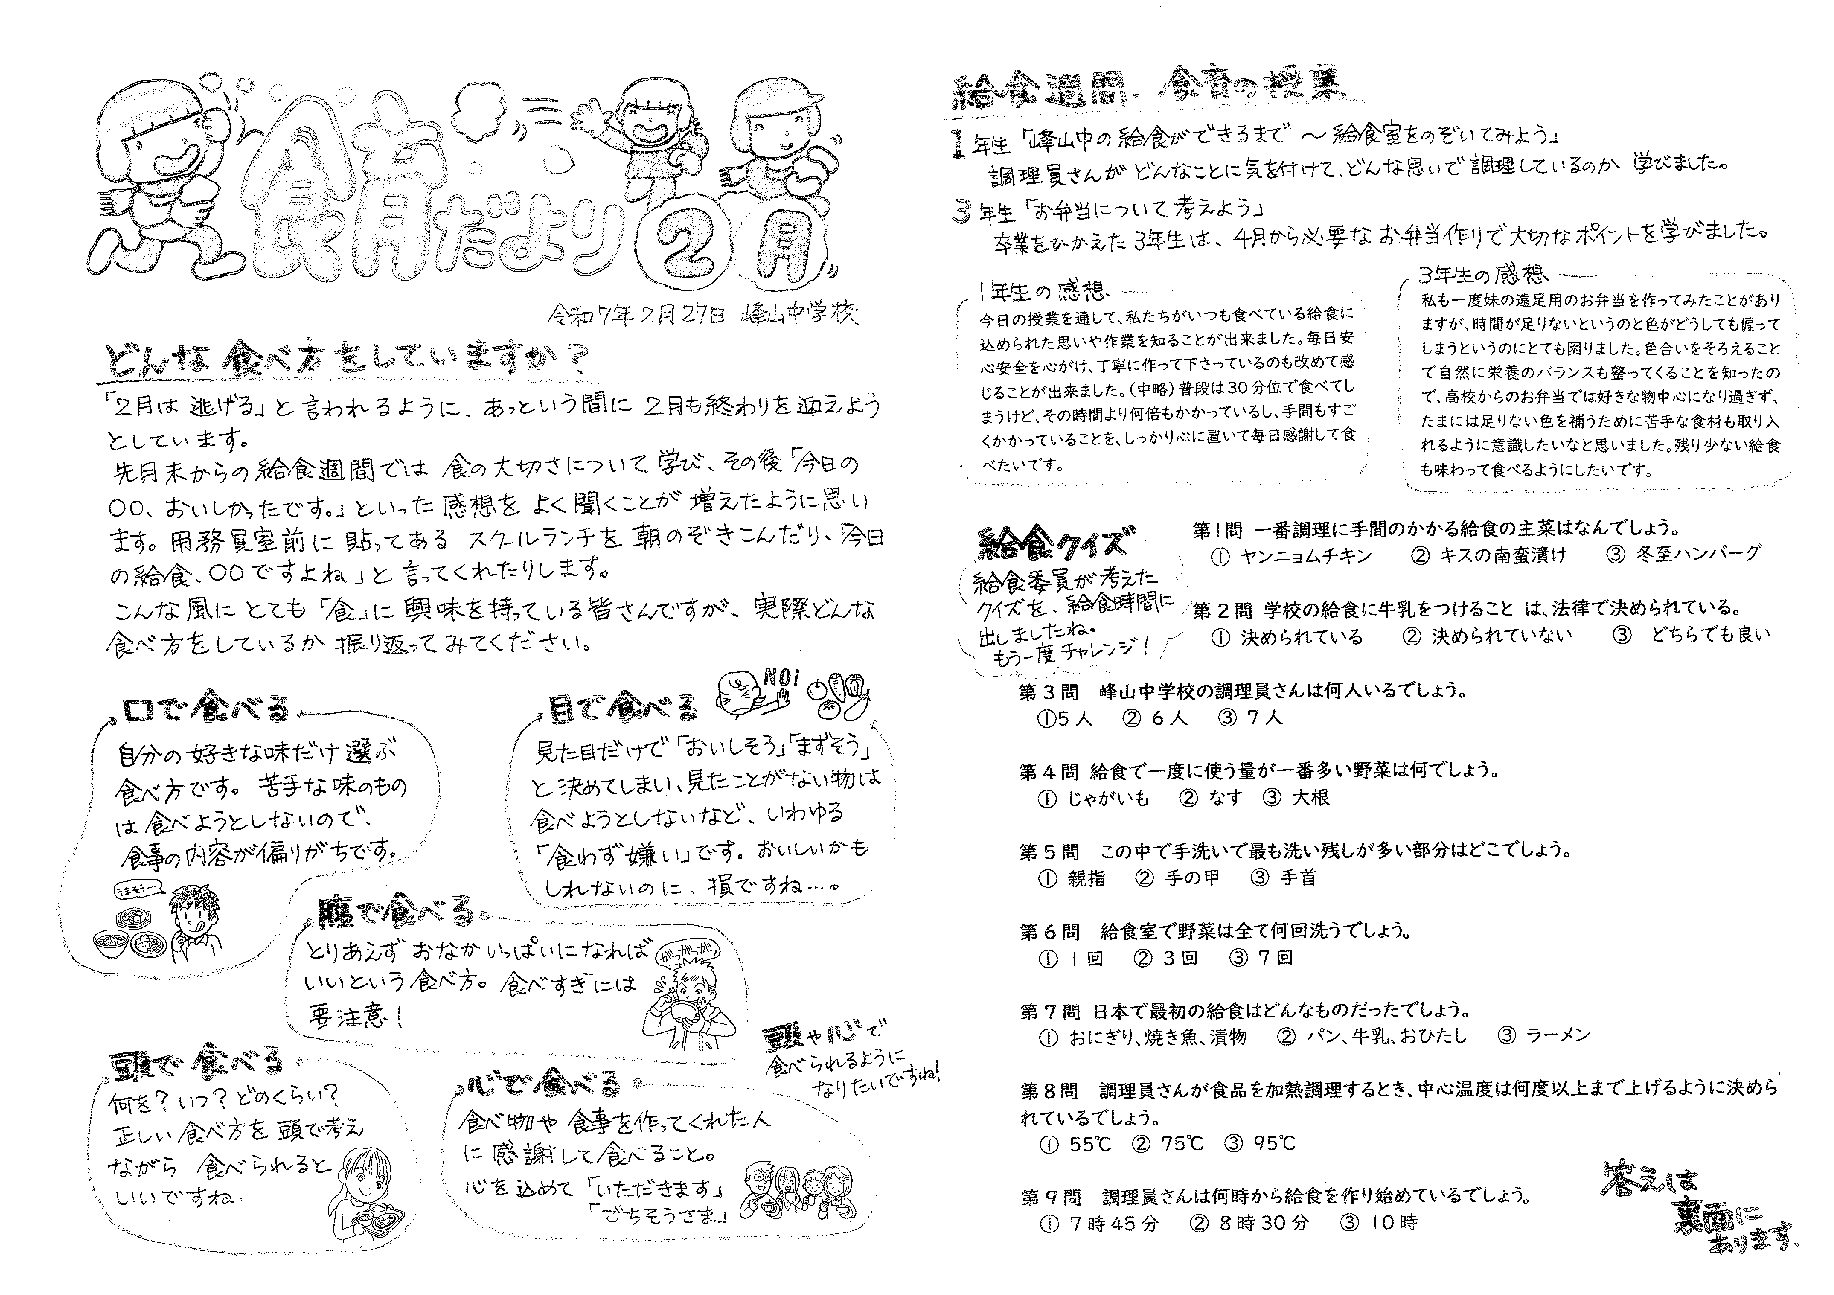 食育だより 2月
令和7年2月27日 峰山中学校
どんな食べ方をしていますか？
「2月は逃げる」と言われるように、あっという間に2月も終わりを迎えよう
としています。
先月末からの給食週間では食の大切さについて学び、その後「今日の
〇〇、おいしかったです。」といった感想をよく聞くことが増えたように思い
ます。用務員室前に貼ってあるスクールランチを朝のぞきこんだり、「今日
の給食、〇〇ですよね」と言ってくれたりします。
こんな風にとても「食」に興味を持っている皆さんですが、実際どんな
食べ方をしているか振り返ってみてください。
口で食べる
自分の好きな味だけ選ぶ
食べ方です。苦手な味のもの
は食べようとしないので、
食事の内容が偏りがちです。
目で食べる
NO!
見た目だけで「おいしそう」「まずそう」
と決めてしまい、見たことがない物は
食べようとしないなど、いわゆる
「食わず嫌い」です。おいしいかも
しれないのに、損ですね…。
腹で食べる
とりあえずおなかいっぱいになれば
いいという食べ方。食べすぎには
要注意！
ガツガツ
頭で食べる
何を？いつ？どのくらい？
正しい食べ方を頭で考え
ながら食べられると
いいですね。
心で食べる
食べ物や食事を作ってくれた人
に感謝して食べること。
心を込めて「いただきます」
「ごちそうさま」
頭や心で
食べられるように
なりたいですね！
給食週間、食育の授業
1年生「峰山中の給食ができるまで ～給食室をのぞいてみよう」
調理員さんがどんなことに気を付けて、どんな思いで調理しているのか学びました。
3年生「お弁当について考えよう」
卒業をひかえた3年生は、4月から必要なお弁当作りで大切なポイントを学びました。
1年生の感想
今日の授業を通して、私たちがいつも食べている給食に
込められた思いや作業を知ることが出来ました。毎日安
心安全を心がけ、丁寧に作って下さっているのも改めて感
じることが出来ました。（中略）普段は30分位で食べてし
まうけど、その時間より何倍もかかっているし、手間もすご
くかかっていることを、しっかり心に置いて毎日感謝して食
べたいです。
3年生の感想
私も一度妹の遠足用のお弁当を作ってみたことがあり
ますが、時間が足りないというのと色がどうしても偏って
しまうというのにとても困りました。色合いをそろえること
で自然に栄養のバランスも整ってくることを知ったの
で、高校からのお弁当では好きな物中心になり過ぎず、
たまには足りない色を補うために苦手な食材も取り入
れるように意識したいなと思いました。残り少ない給食
も味わって食べるようにしたいです。
給食クイズ
給食委員が考えた
クイズを、給食時間に
出しましたね。
もう一度チャレンジ！
第1問 一番調理に手間のかかる給食の主菜はなんでしょう。
① ヤンニョムチキン ② キスの南蛮漬け ③ 冬至ハンバーグ
第2問 学校の給食に牛乳をつけること は、法律で決められている。
① 決められている ② 決められていない ③ どちらでも良い
第3問 峰山中学校の調理員さんは何人いるでしょう。
①5人 ②6人 ③7人
第4問 給食で一度に使う量が一番多い野菜は何でしょう。
① じゃがいも ② なす ③ 大根
第5問 この中で手洗いで最も洗い残しが多い部分はどこでしょう。
① 親指 ② 手の甲 ③ 手首
第6問 給食室で野菜は全て何回洗うでしょう。
① 1回 ② 3回 ③ 7回
第7問 日本で最初の給食はどんなものだったでしょう。
① おにぎり、焼き魚、漬物 ② パン、牛乳、おひたし ③ ラーメン
第8問 調理員さんが食品を加熱調理するとき、中心温度は何度以上まで上げるように決めら
れているでしょう。
① 55℃ ② 75℃ ③ 95℃
第9問 調理員さんは何時から給食を作り始めているでしょう。
① 7時45分 ② 8時30分 ③ 10時
答えは
裏面に
あります。